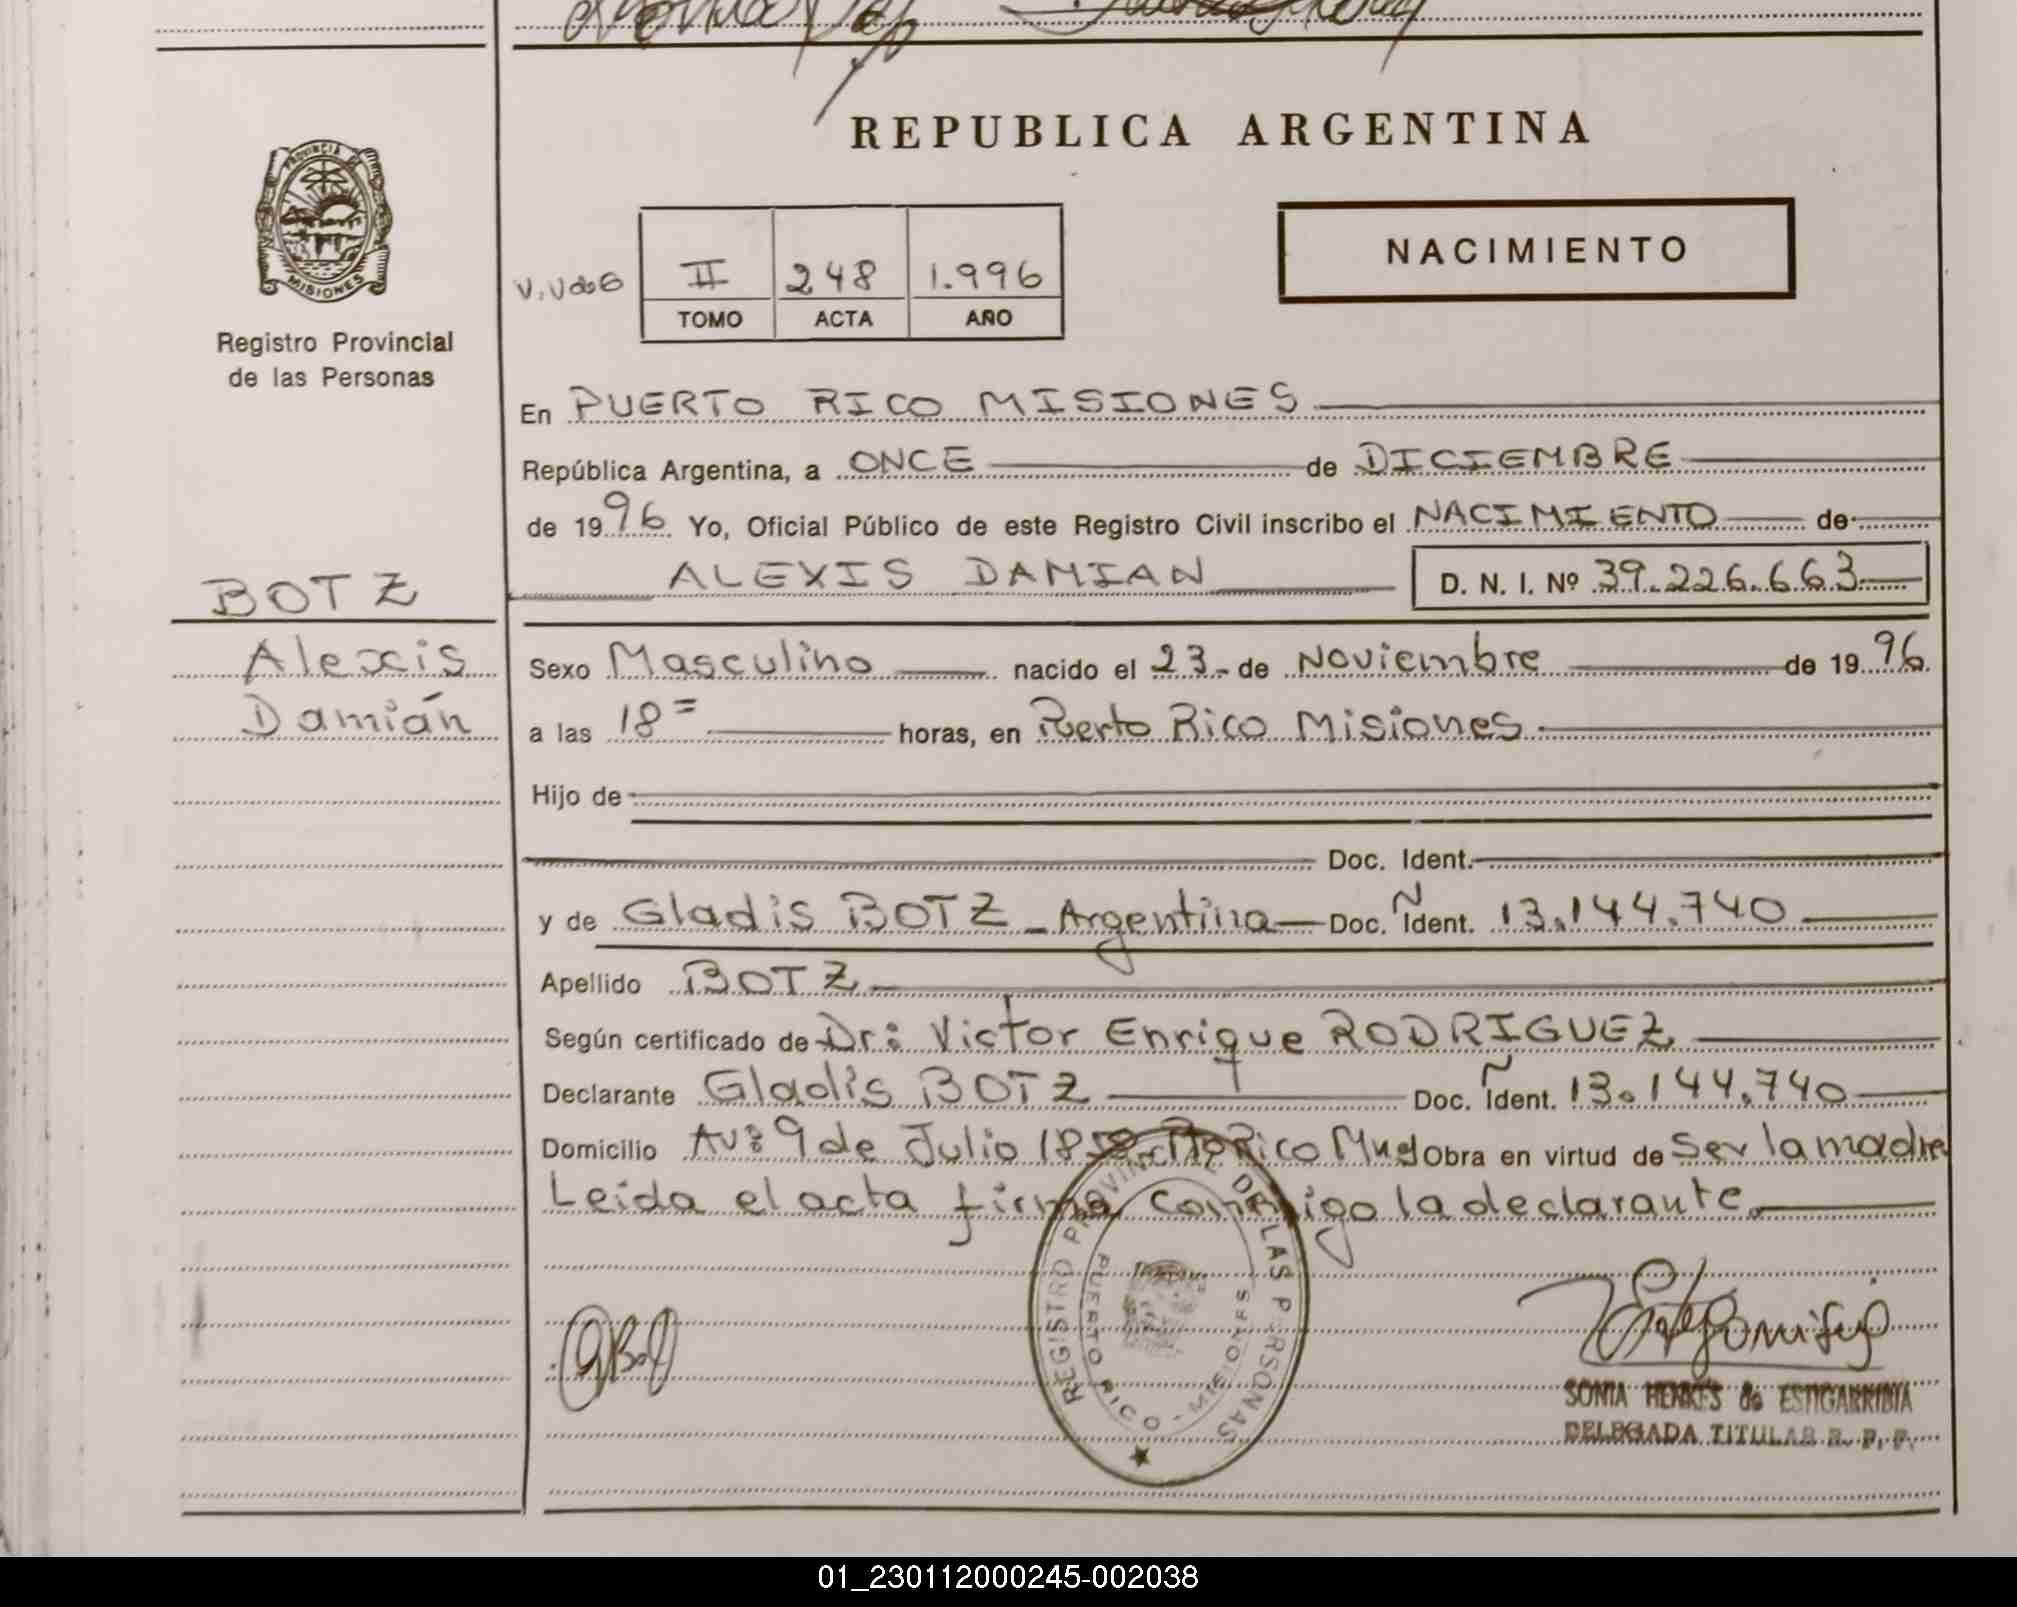 REPUBLICA ARGENTINA
PROVINCIA DE
MISIONES
Registro Provincial
de las Personas
NACIMIENTO
II 248 1.996
TOMO ACTA AÑO
En PUERTO RICO MISIONES
República Argentina, a ONCE de DICIEMBRE
de 1996 Yo, Oficial Público de este Registro Civil inscribo el NACIMIENTO de
ALEXIS DAMIAN D. N. I. Nº 39.226.663
BOTZ
Alexis
Damián
Sexo Masculino nacido el 23 de Noviembre de 1996.
a las 18= horas, en Puerto Rico Misiones
Hijo de
Doc. Ident.
y de Gladis BOTZ - Argentina Doc. Ident. 13.144.740
Apellido BOTZ
Según certificado de Dr: Victor Enrique RODRIGUEZ
Declarante Gladis BOTZ Doc. Ident. 13.144.740
Domicilio Av: 9 de Julio Rico Obra en virtud de Ser la madre
Leida el acta firma conmigo la declarante.
REGISTRO PROVINCIAL DE LAS PERSONAS
PUERTO RICO - MISIONES
SONIA de ESTIGARRIBIA
DELEGADA TITULAR R. P. P.
01_230112000245-002038